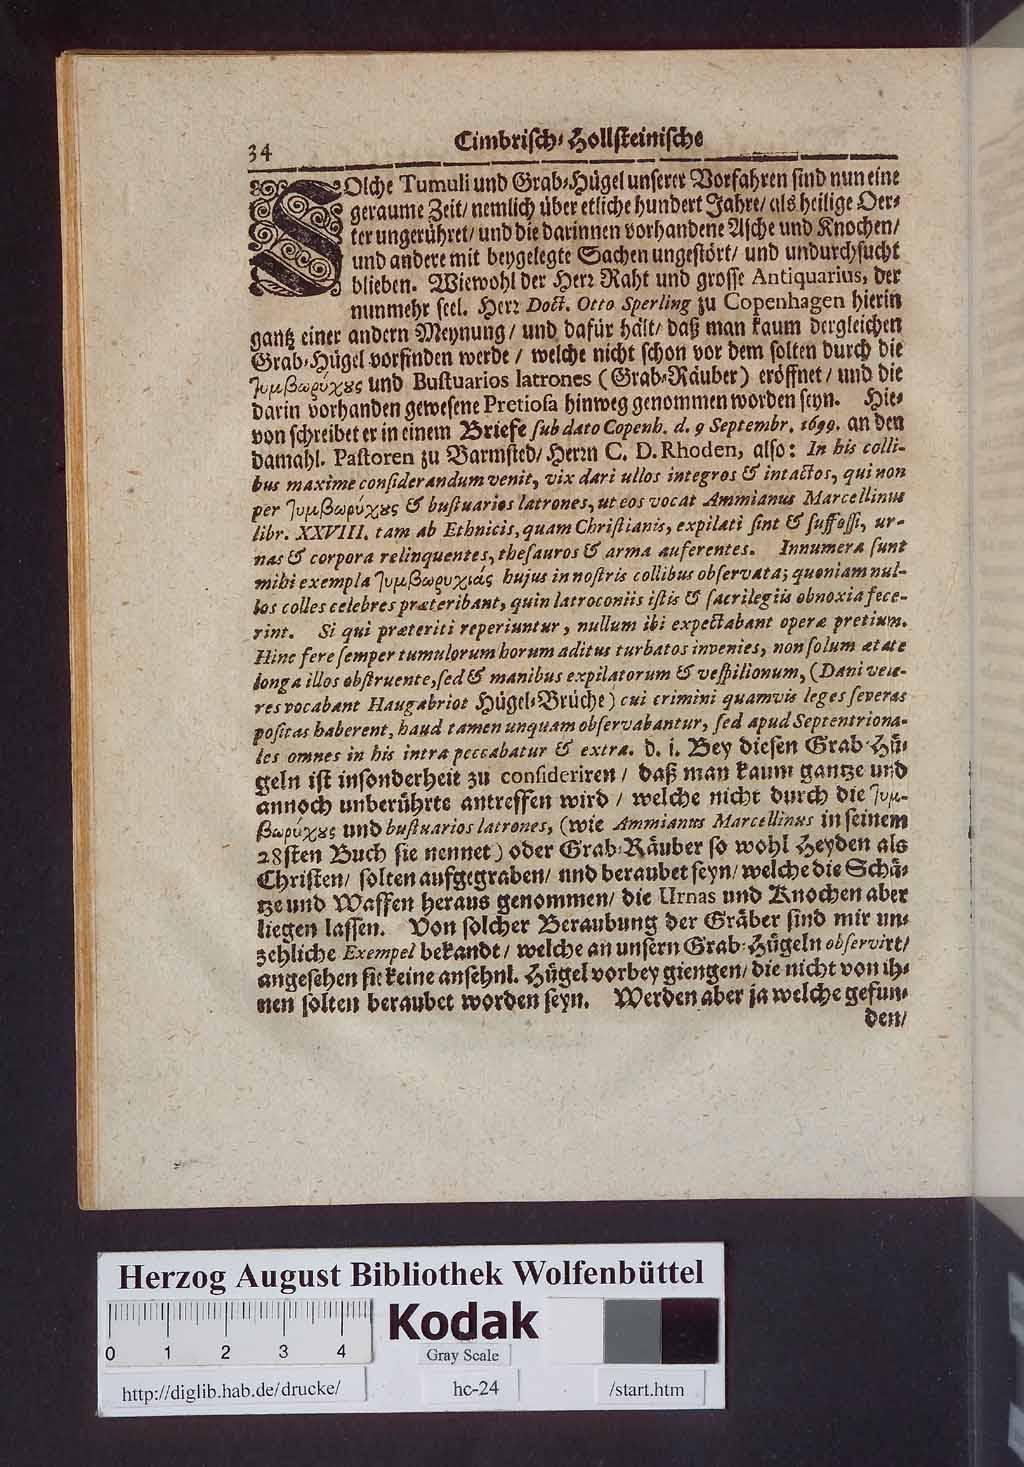 34
Cimbrisch-Hollsteinische
SOlche Tumuli und Grab-Hügel unserer Vorfahren sind nun eine
geraume Zeit/ nemlich über etliche hundert Jahre/ als heilige Oer-
ter ungerühret/ und die darinnen vorhandene Asche und Knochen/
und andere mit beygelegte Sachen ungestört/ und undurchsucht
blieben. Wiewohl der Herr Raht und grosse Antiquarius, der
nunmehr seel. Herr Doct. Otto Sperling zu Copenhagen hierin
gantz einer andern Meynung/ und dafür hält/ daß man kaum dergleichen
Grab-Hügel vorfinden werde / welche nicht schon vor dem solten durch die
Ƭυμβωρύχȣς und Bustuarios latrones (Grab-Räuber) eröffnet/ und die
darin vorhanden gewesene Pretiosa hinweg genommen worden seyn. Hie-
von schreibet er in einem Briefe sub dato Copenh. d. 9 Septembr. 1699. an den
damahl. Pastoren zu Barmsted/ Herrn C. D. Rhoden, also: In his colli-
bus maxime considerandum venit, vix dari ullos integros & intactos, qui non
per Ƭυμβωρύχȣς & bustuarios latrones, ut eos vocat Ammianus Marcellinus
libr. XXVIII. tam ab Ethnicis, quam Christianis, expilati sint & suffossi, ur-
nas & corpora relinquentes, thesauros & arma auferentes. Innumera sunt
mihi exempla Ƭυμβωρυχιάς hujus in nostris collibus observata; quoniam nul-
los colles celebres præteribant, quin latroconiis istis & sacrilegiis obnoxia fece-
rint. Si qui præteriti reperiuntur, nullum ibi expectabant operæ pretium.
Hinc fere semper tumulorum horum aditus turbatos invenies, non solum ætate
longa illos obstruente, sed & manibus expilatorum & vespilionum, (Dani vete-
res vocabant Haugabriot Hügel-Brüche) cui crimini quamvis leges severas
positas haberent, haud tamen unquam observabantur, sed apud Septentriona-
les omnes in his intra peccabatur & extra. d. i. Bey diesen Grab-Hü-
geln ist insonderheit zu consideriren / daß man kaum gantze und
annoch unberührte antreffen wird / welche nicht durch die Ƭυμ-
βωρύχȣς und bustuarios latrones, (wie Ammianus Marcellinus in seinem
28sten Buch sie nennet) oder Grab-Räuber so wohl Heyden als
Christen/ solten aufgegraben/ und beraubet seyn/ welche die Schä-
tze und Waffen heraus genommen/ die Urnas und Knochen aber
liegen lassen. Von solcher Beraubung der Gräber sind mir un-
zehliche Exempel bekandt/ welche an unsern Grab-Hügeln observirt/
angesehen sie keine ansehnl. Hügel vorbey giengen/ die nicht von ih-
nen solten beraubet worden seyn. Werden aber ja welche gefun-
den/
Herzog August Bibliothek Wolfenbüttel
Kodak
0 1 2 3 4
Gray Scale
http://diglib.hab.de/drucke/
hc-24
/start.htm